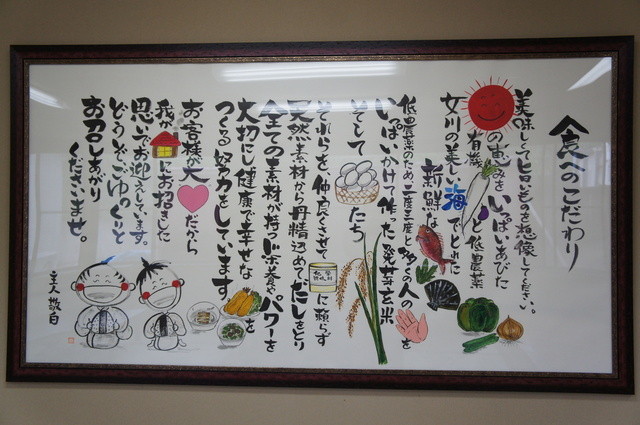 食へのこだわり
美味しくてヒョいものを想像してください。
の恵みをいっぱいあびた
有機 と低農薬
女川の美しい海でとれた
新鮮な
低農薬のため二度三度と多くの人の を
いっぱいかけて作った発芽玄米
そして たち
それらを、仲良くさせて に頼らず
天然素材から丹精込めてだしをとり
全ての素材が持つ栄養やパワーを
大切にし健康で幸せな を
つくる努力をしています。
お客様が大 だから
我が にお招きした
思いでお迎えしています。
どうぞごゆっくりと
お召しあがり
くださいませ。
主人 敬白